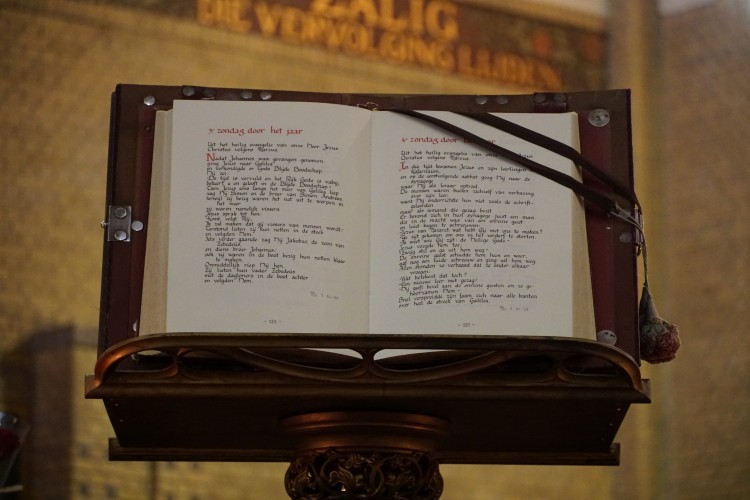 ZALIG
DIE VERVOLGING LIJDEN
3e zondag door het jaar
Uit het heilig evangelie van onze Heer Jezus
Christus volgens Marcus
Nadat Johannes was gevangen genomen,
ging Jezus naar Galilea
en verkondigde er Gods Blijde Boodschap.
Hij zei:
"De tijd is vervuld en het Rijk Gods is nabij;
bekeert u en gelooft in de Blijde Boodschap."
Toen Jezus eens langs het meer van Galilea liep
zag Hij Simon en de broer van Simon, Andreas
terwijl zij bezig waren het net uit te werpen in
het meer;
zij waren namelijk vissers.
Jezus sprak tot hen:
"Komt, volgt Mij;
Ik zal maken dat gij vissers van mensen wordt."
Terstond lieten zij hun netten in de steek
en volgden Hem.
Iets verder gaande zag Hij Jakobus, de zoon van
Zebedeüs
en diens broer Johannes;
ook zij waren in de boot bezig hun netten klaar
te maken.
Onmiddellijk riep Hij hen.
Zij lieten hun vader Zebedeüs
met de dagloners in de boot achter
en volgden Hem.
4e zondag door
Uit het heilig evangelie van onze Heer Jezus
Christus volgens Marcus
In die tijd kwamen Jezus en zijn leerlingen
Kafarnaüm,
en op de eerstvolgende sabbat ging Hij naar de
synagoge
waar Hij als leraar optrad.
De mensen waren buiten zichzelf van verbazing
over zijn leer,
want Hij onderrichtte hen niet zoals de schrift-
geleerden,
maar als iemand die gezag bezit.
Er bevond zich in hun synagoge juist een man
die in de macht was van een onreine geest
en luid begon te schreeuwen:
"Jezus van Nazaret, wat hebt Gij met ons te maken?
Gij zijt gekomen om ons in het verderf te storten.
Ik weet wie Gij zijt: de Heilige Gods."
Jezus voegde hem toe:
"Zwijg stil en ga uit hem weg."
De onreine geest schudde hem heen en weer,
gaf nog een luide schreeuw en ging uit hem weg.
Allen stonden zo verbaasd dat ze onder elkaar
vroegen:
"Wat betekent dat toch?
Een nieuwe leer met gezag!
Hij geeft bevel aan de onreine geesten en ze ge-
hoorzamen Hem."
Snel verspreidde zijn faam zich naar alle kanten
over heel de streek van Galilea.